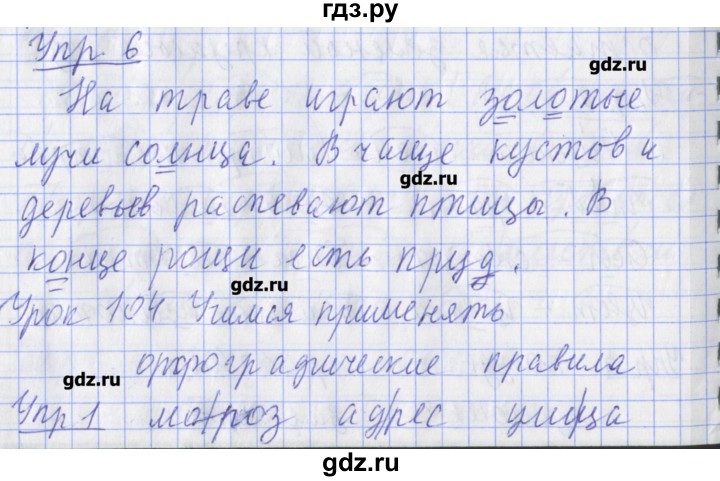 гдз.ру
Упр 6
gdz.ru
На траве играют золотые
лучи солнца. В чаще кустов и
gdz.ru
деревьев распевают птицы. В
конце рощи есть пруд.
gdz.ru
Урок 104 Учимся применять
орфографические правила
gdz.ru
Упр 1 матроз адрес
gdz.ru